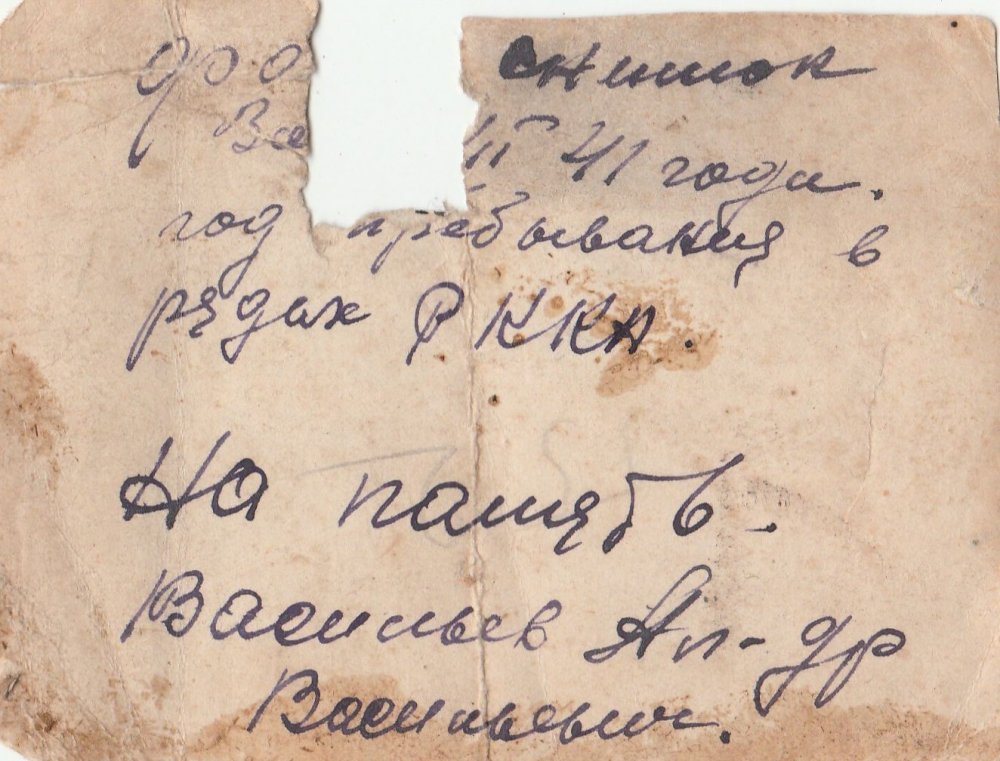 фо снимок
41 года.
год пребывания в
рядах РККА.
На память.
Васильев Ал-др
Васильевич.